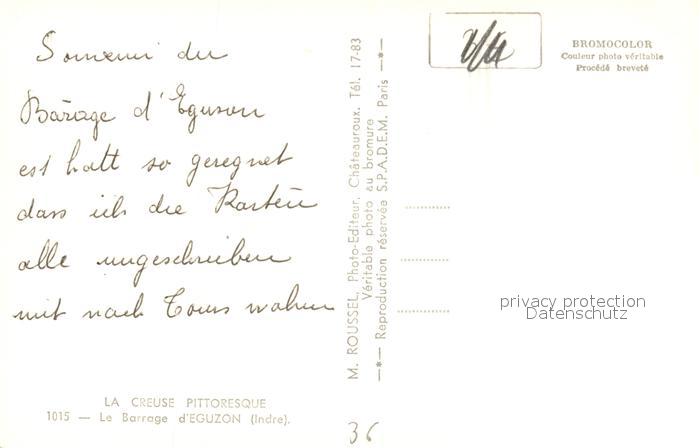 Souvenir du
Barage d'Eguson
est hatt so geregnet
dass ich die Karten
alle ungeschrieben
mit nach Tours nahm
LA CREUSE PITTORESQUE
1015 — Le Barrage d'EGUZON (Indre).
M. ROUSSEL, Photo-Editeur, Châteauroux. Tél. 17-83
Véritable photo au bromure
—*— Reproduction réservée S.P.A.D.E.M. Paris —*—
BROMOCOLOR
Couleur photo véritable
Procédé breveté
privacy protection
Datenschutz
36